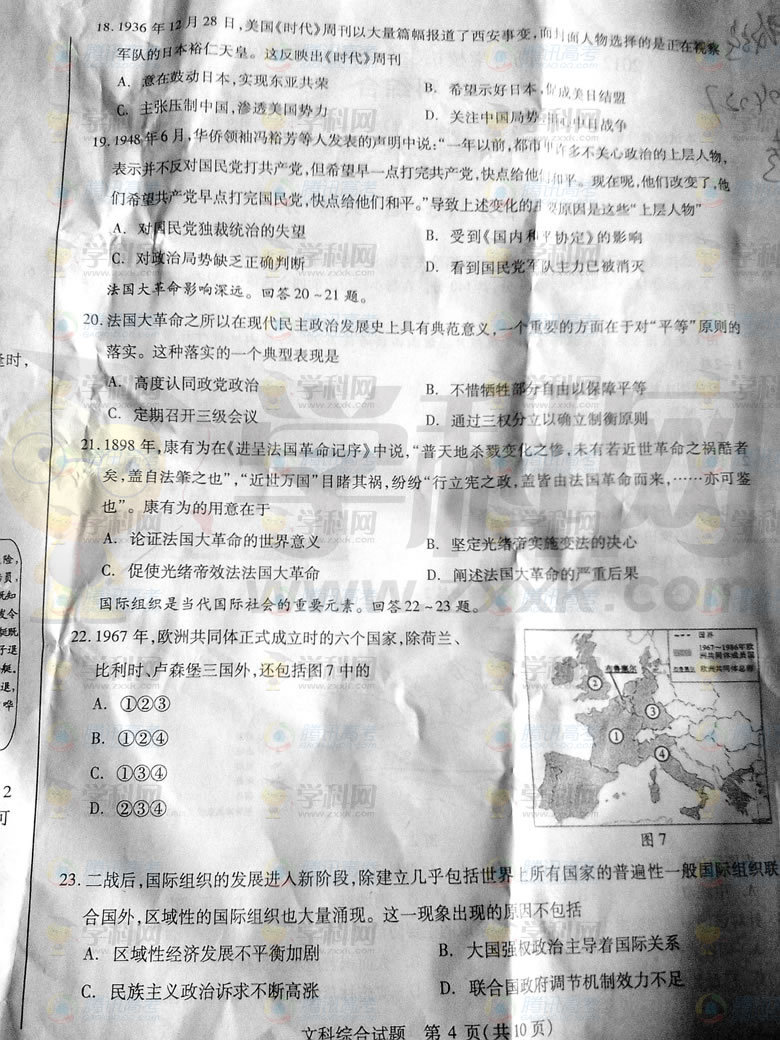 18. 1936年12月28日,美国《时代》周刊以大量篇幅报道了西安事变,而封面人物选择的是正在视察
军队的日本裕仁天皇。这反映出《时代》周刊
A. 意在鼓动日本,实现东亚共荣
B. 希望示好日本,促成美日结盟
C. 主张压制中国,渗透美国势力
D. 关注中国局势,担心中日战争
19. 1948年6月,华侨领袖冯裕芳等人发表的声明中说:“一年以前,都市中许多不关心政治的上层人物,
表示并不反对国民党打共产党,但希望早一点打完共产党,快点给他们和平。现在呢,他们改变了,他
们希望共产党早点打完国民党,快点给他们和平。”导致上述变化的主要原因是这些“上层人物”
A. 对国民党独裁统治的失望
B. 受到《国内和平协定》的影响
C. 对政治局势缺乏正确判断
D. 看到国民党军队主力已被消灭
法国大革命影响深远。回答20~21题。
20. 法国大革命之所以在现代民主政治发展史上具有典范意义,一个重要的方面在于对“平等”原则的
落实。这种落实的一个典型表现是
A. 高度认同政党政治
B. 不惜牺牲部分自由以保障平等
C. 定期召开三级会议
D. 通过三权分立以确立制衡原则
21. 1898年,康有为在《进呈法国革命记序》中说,“普天地杀戮变化之惨,未有若近世革命之祸酷者
矣,盖自法肇之也”,“近世万国”目睹其祸,纷纷“行立宪之政,盖皆由法国革命而来,……亦可鉴
也”。康有为的用意在于
A. 论证法国大革命的世界意义
B. 坚定光绪帝实施变法的决心
C. 促使光绪帝效法法国大革命
D. 阐述法国大革命的严重后果
国际组织是当代国际社会的重要元素。回答22~23题。
22. 1967年,欧洲共同体正式成立时的六个国家,除荷兰、
比利时、卢森堡三国外,还包括图7中的
A. ①②③
B. ①②④
C. ①③④
D. ②③④
国界
1967~1986年欧
洲共同体成员国
布鲁塞尔 欧洲共同体总部
布鲁塞尔
②
③
①
④
图7
23. 二战后,国际组织的发展进入新阶段,除建立几乎包括世界上所有国家的普遍性一般国际组织联
合国外,区域性的国际组织也大量涌现。这一现象出现的原因不包括
A. 区域性经济发展不平衡加剧
B. 大国强权政治主导着国际关系
C. 民族主义政治诉求不断高涨
D. 联合国政府调节机制效力不足
文科综合试题 第4页(共10页)
学科网
www.zxxk.com
腾讯高考